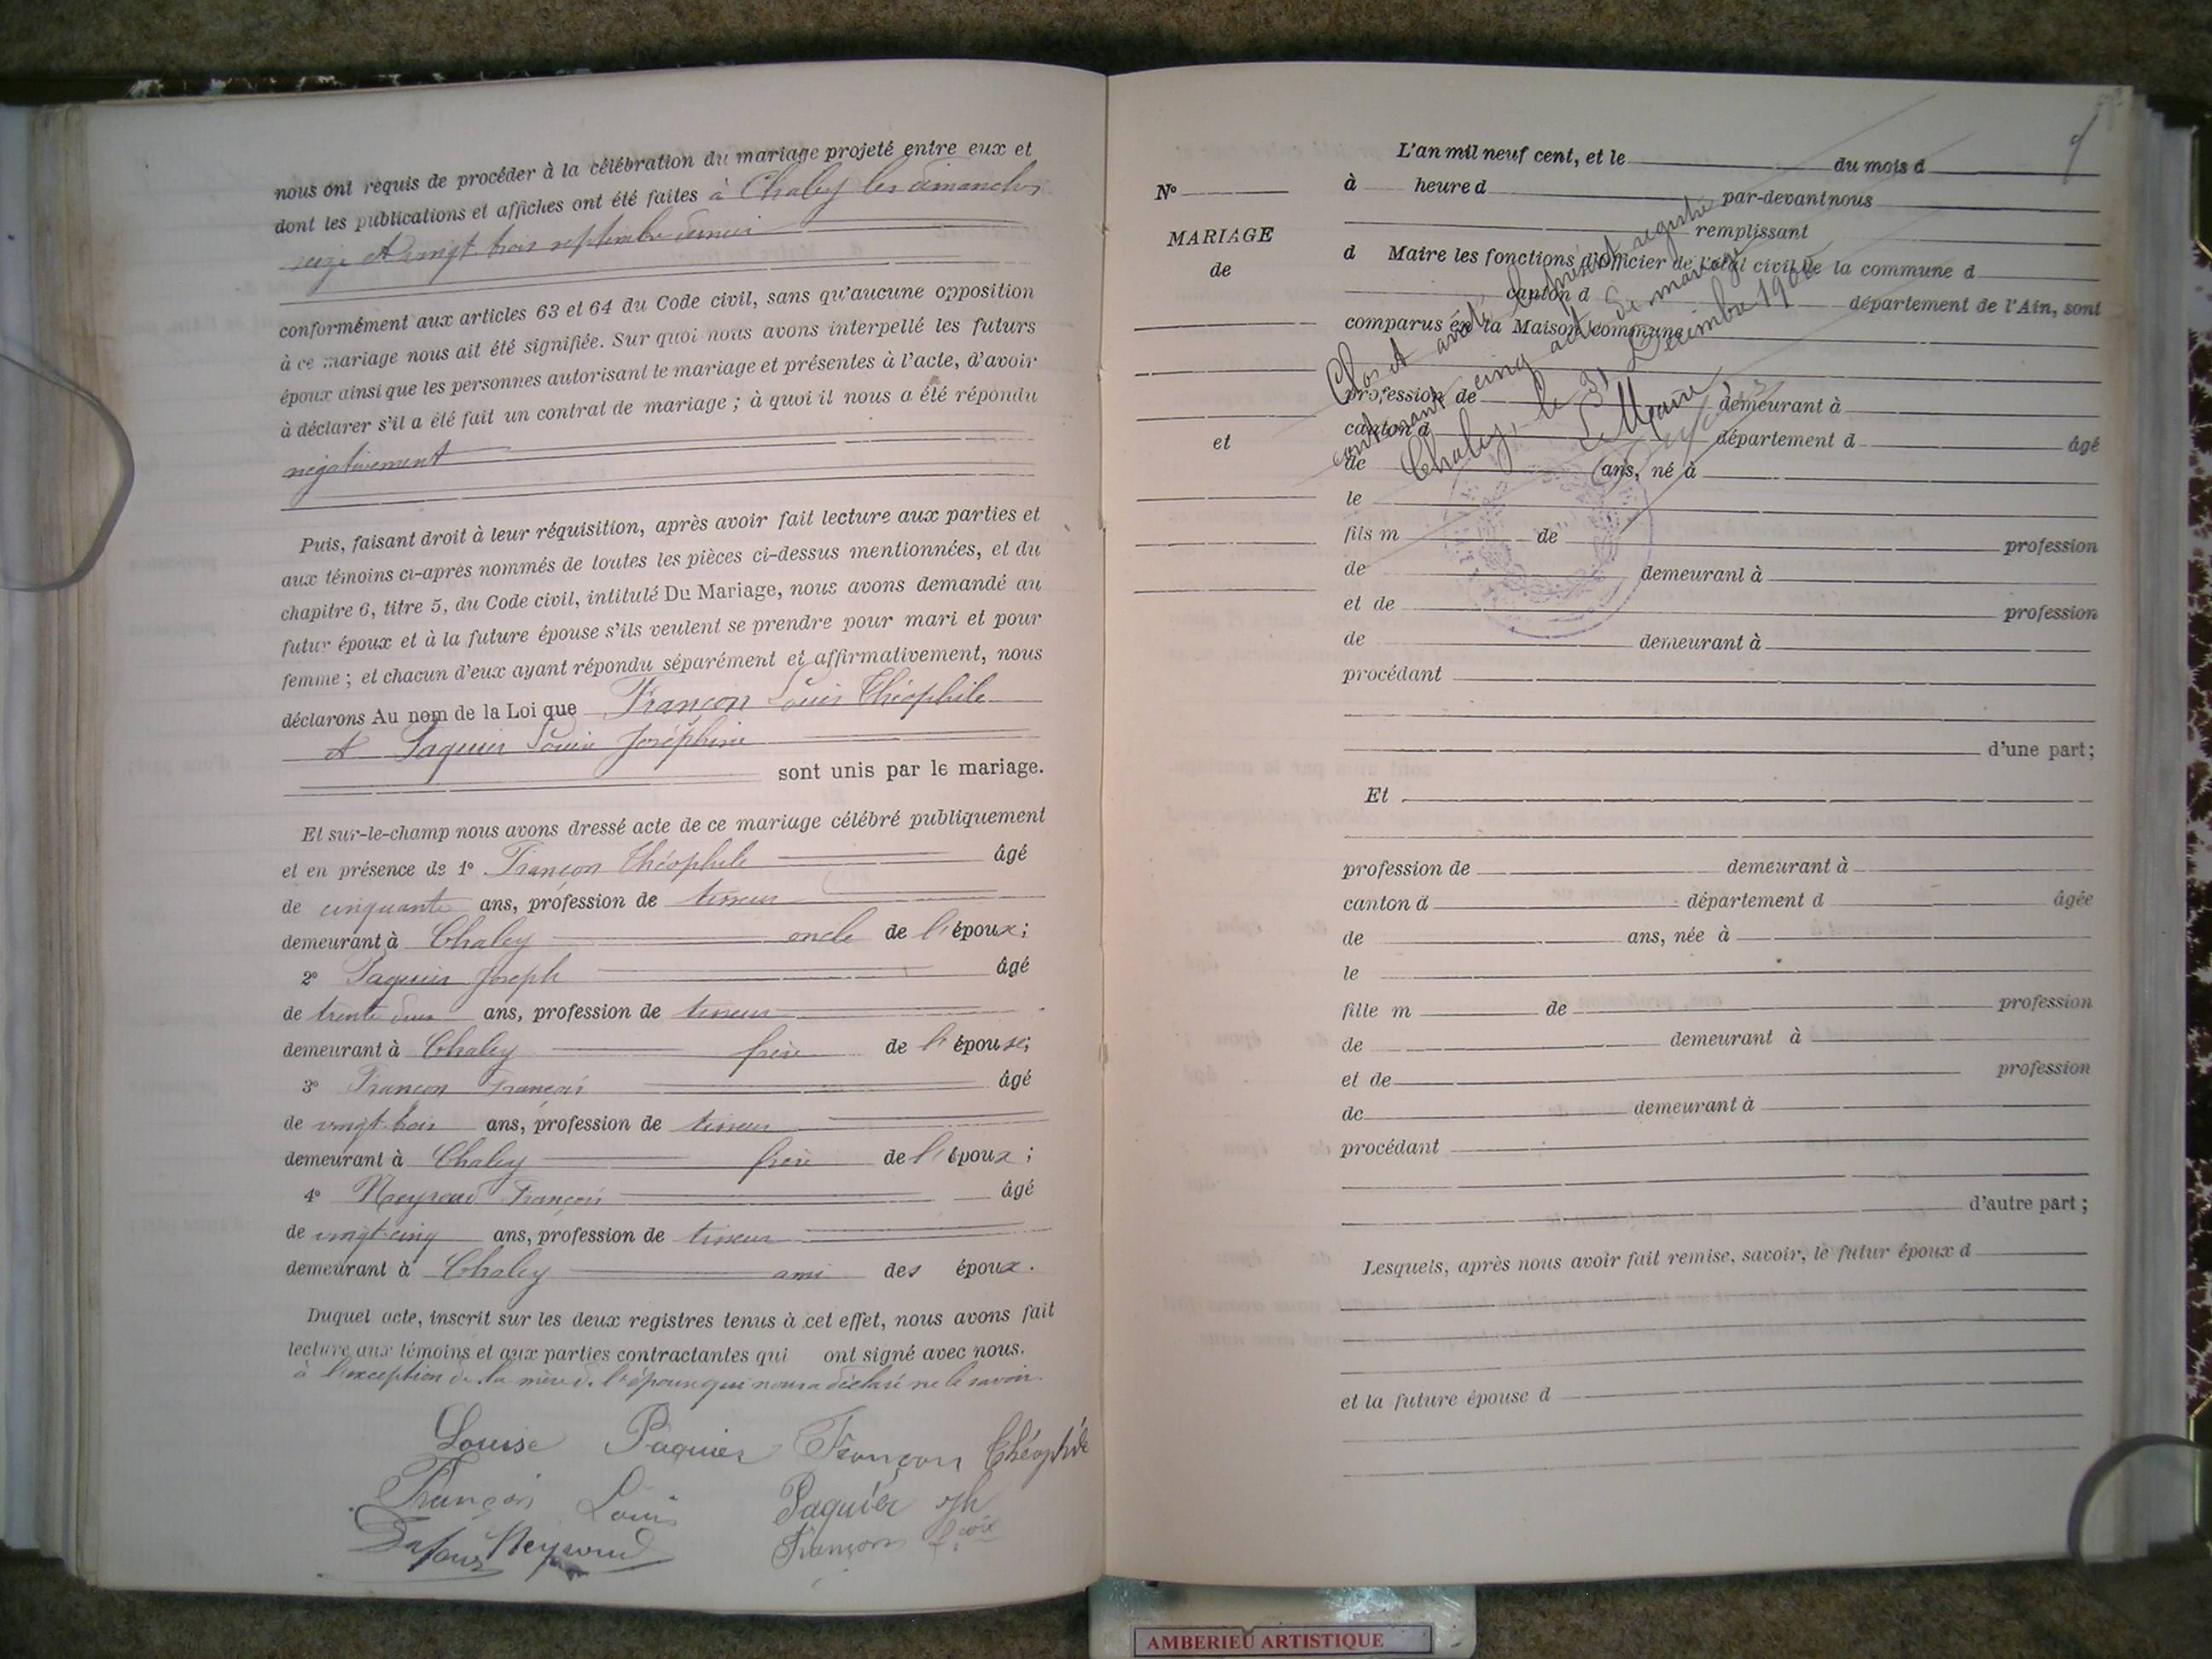 nous ont requis de procéder à la célébration du mariage projeté entre eux et
dont les publications et affiches ont été faites à Chaley les dimanches
seize et vingt trois septembre dernier
conformément aux articles 63 et 64 du Code civil, sans qu'aucune opposition
à ce mariage nous ait été signifiée. Sur quoi nous avons interpellé les futurs
époux ainsi que les personnes autorisant le mariage et présentes à l'acte, d'avoir
à déclarer s'il a été fait un contrat de mariage ; à quoi il nous a été répondu
négativement
Puis, faisant droit à leur réquisition, après avoir fait lecture aux parties et
aux témoins ci-après nommés de toutes les pièces ci-dessus mentionnées, et du
chapitre 6, titre 5, du Code civil, intitulé Du Mariage, nous avons demandé au
futur époux et à la future épouse s'ils veulent se prendre pour mari et pour
femme ; et chacun d'eux ayant répondu séparément et affirmativement, nous
déclarons Au nom de la Loi que Françon Louis Théophile
et Paquier Louise Joséphine
sont unis par le mariage.
Et sur-le-champ nous avons dressé acte de ce mariage célébré publiquement
et en présence de 1° Françon Théophile âgé
de cinquante ans, profession de tisseur
demeurant à Chaley oncle de l'époux ;
2° Paquier Joseph âgé
de trente deux ans, profession de tisseur
demeurant à Chaley frère de l'épouse;
3° Françon François âgé
de vingt trois ans, profession de tisseur
demeurant à Chaley frère de l'époux ;
4° Neyroud François âgé
de vingt-cinq ans, profession de tisseur
demeurant à Chaley ami des époux.
Duquel acte, inscrit sur les deux registres tenus à cet effet, nous avons fait
lecture aux témoins et aux parties contractantes qui ont signé avec nous.
à l'exception de la mère de l'époux qui nous a déclaré ne le savoir.
Louise Paquier Françon Théophile
Françon Louis Paquier Jh
Neyroud Françon fçois
9
N°
MARIAGE
de
et
L'an mil neuf cent, et le du mois d
à heure d par-devant nous
remplissant
d Maire les fonctions d'Officier de l'état civil de la commune d
canton d département de l'Ain, sont
comparus en la Maison commune
profession de demeurant à
canton d département d âgé
de ans, né à
le
fils m de profession
de demeurant à
et de profession
de demeurant à
procédant
d'une part;
Et
profession de demeurant à
canton d département d âgée
de ans, née à
le
fille m de profession
de demeurant à
et de profession
de demeurant à
procédant
d'autre part ;
Lesquels, après nous avoir fait remise, savoir, le futur époux d
et la future épouse d
Clos et arrêté le présent registre
contenant cinq actes de mariage
Chaley, le 31 Décembre 1900
Le Maire
AMBERIEU ARTISTIQUE